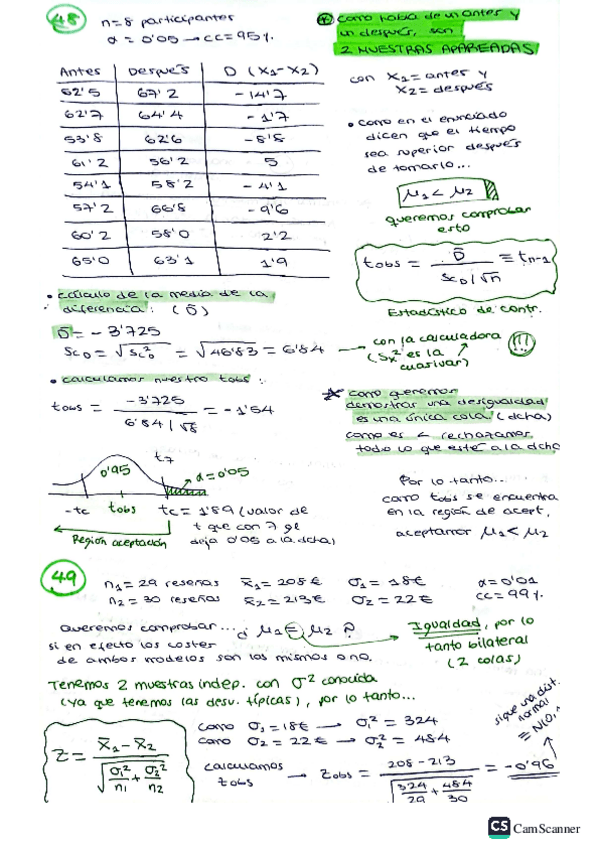 48
n=8 participantes
α = 0'05 → CC=95%.
* como habla de un antes y
un después, son
2 MUESTRAS APAREADAS
con X₁=antes y
X₂=después
Antes Después D (X₁-X₂)
52'5 67'2 -14'7
62'7 64'4 -1'7
53'8 62'6 -8'8
61'2 56'2 5
54'1 58'2 -4'1
57'2 66'8 -9'6
60'2 58'0 2'2
65'0 63'1 1'9
• como en el enunciado
dicen que el tiempo
sea superior después
de tomarlo...
μ₁ < μ₂
queremos comprobar
esto
tobs = D̄ / (ScD/√n) ≡ tn-1
Estadístico de contr.
• cálculo de la media de la
diferencia: (D̄)
D̄ = -3'725
ScD = √Sc²D = √46'83 = 6'84 → con la calculadora
(Sx² es la
cuasivar) !!!
• calculamos nuestro tobs:
tobs = -3'725 / (6'84/√8) = -1'54
* como queremos
demostrar una desigualdad
es una única cola (dcha)
como es < rechazamos
todo lo que esté a la dcha
0'95 t₇ α=0'05
-tc tobs tc=1'89 (valor de
t que con 7 gl
deja 0'05 a la dcha)
Región aceptación
Por lo tanto...
como tobs se encuentra
en la región de acept,
aceptamos μ₁<μ₂
49
n₁= 29 reseñas x̄₁= 208€ σ₁= 18€ α=0'01
n₂= 30 reseñas x̄₂= 213€ σ₂= 22€ CC=99%.
Queremos comprobar... ¿ μ₁ = μ₂ ?
si en efecto los costes
de ambos modelos son los mismos o no.
Igualdad, por lo
tanto bilateral
(2 colas)
Tenemos 2 muestras indep. con σ² conocida
(ya que tenemos las desv. típicas), por lo tanto...
Z = (x̄₁ - x̄₂) / √(σ₁²/n₁ + σ₂²/n₂)
como σ₁=18€ → σ₁²= 324
como σ₂= 22€ → σ₂²= 484
sigue una dist.
normal
≡ N(0,
calculamos
tobs → Zobs = (208-213) / √(324/29 + 484/30) = -0'96
CS CamScanner